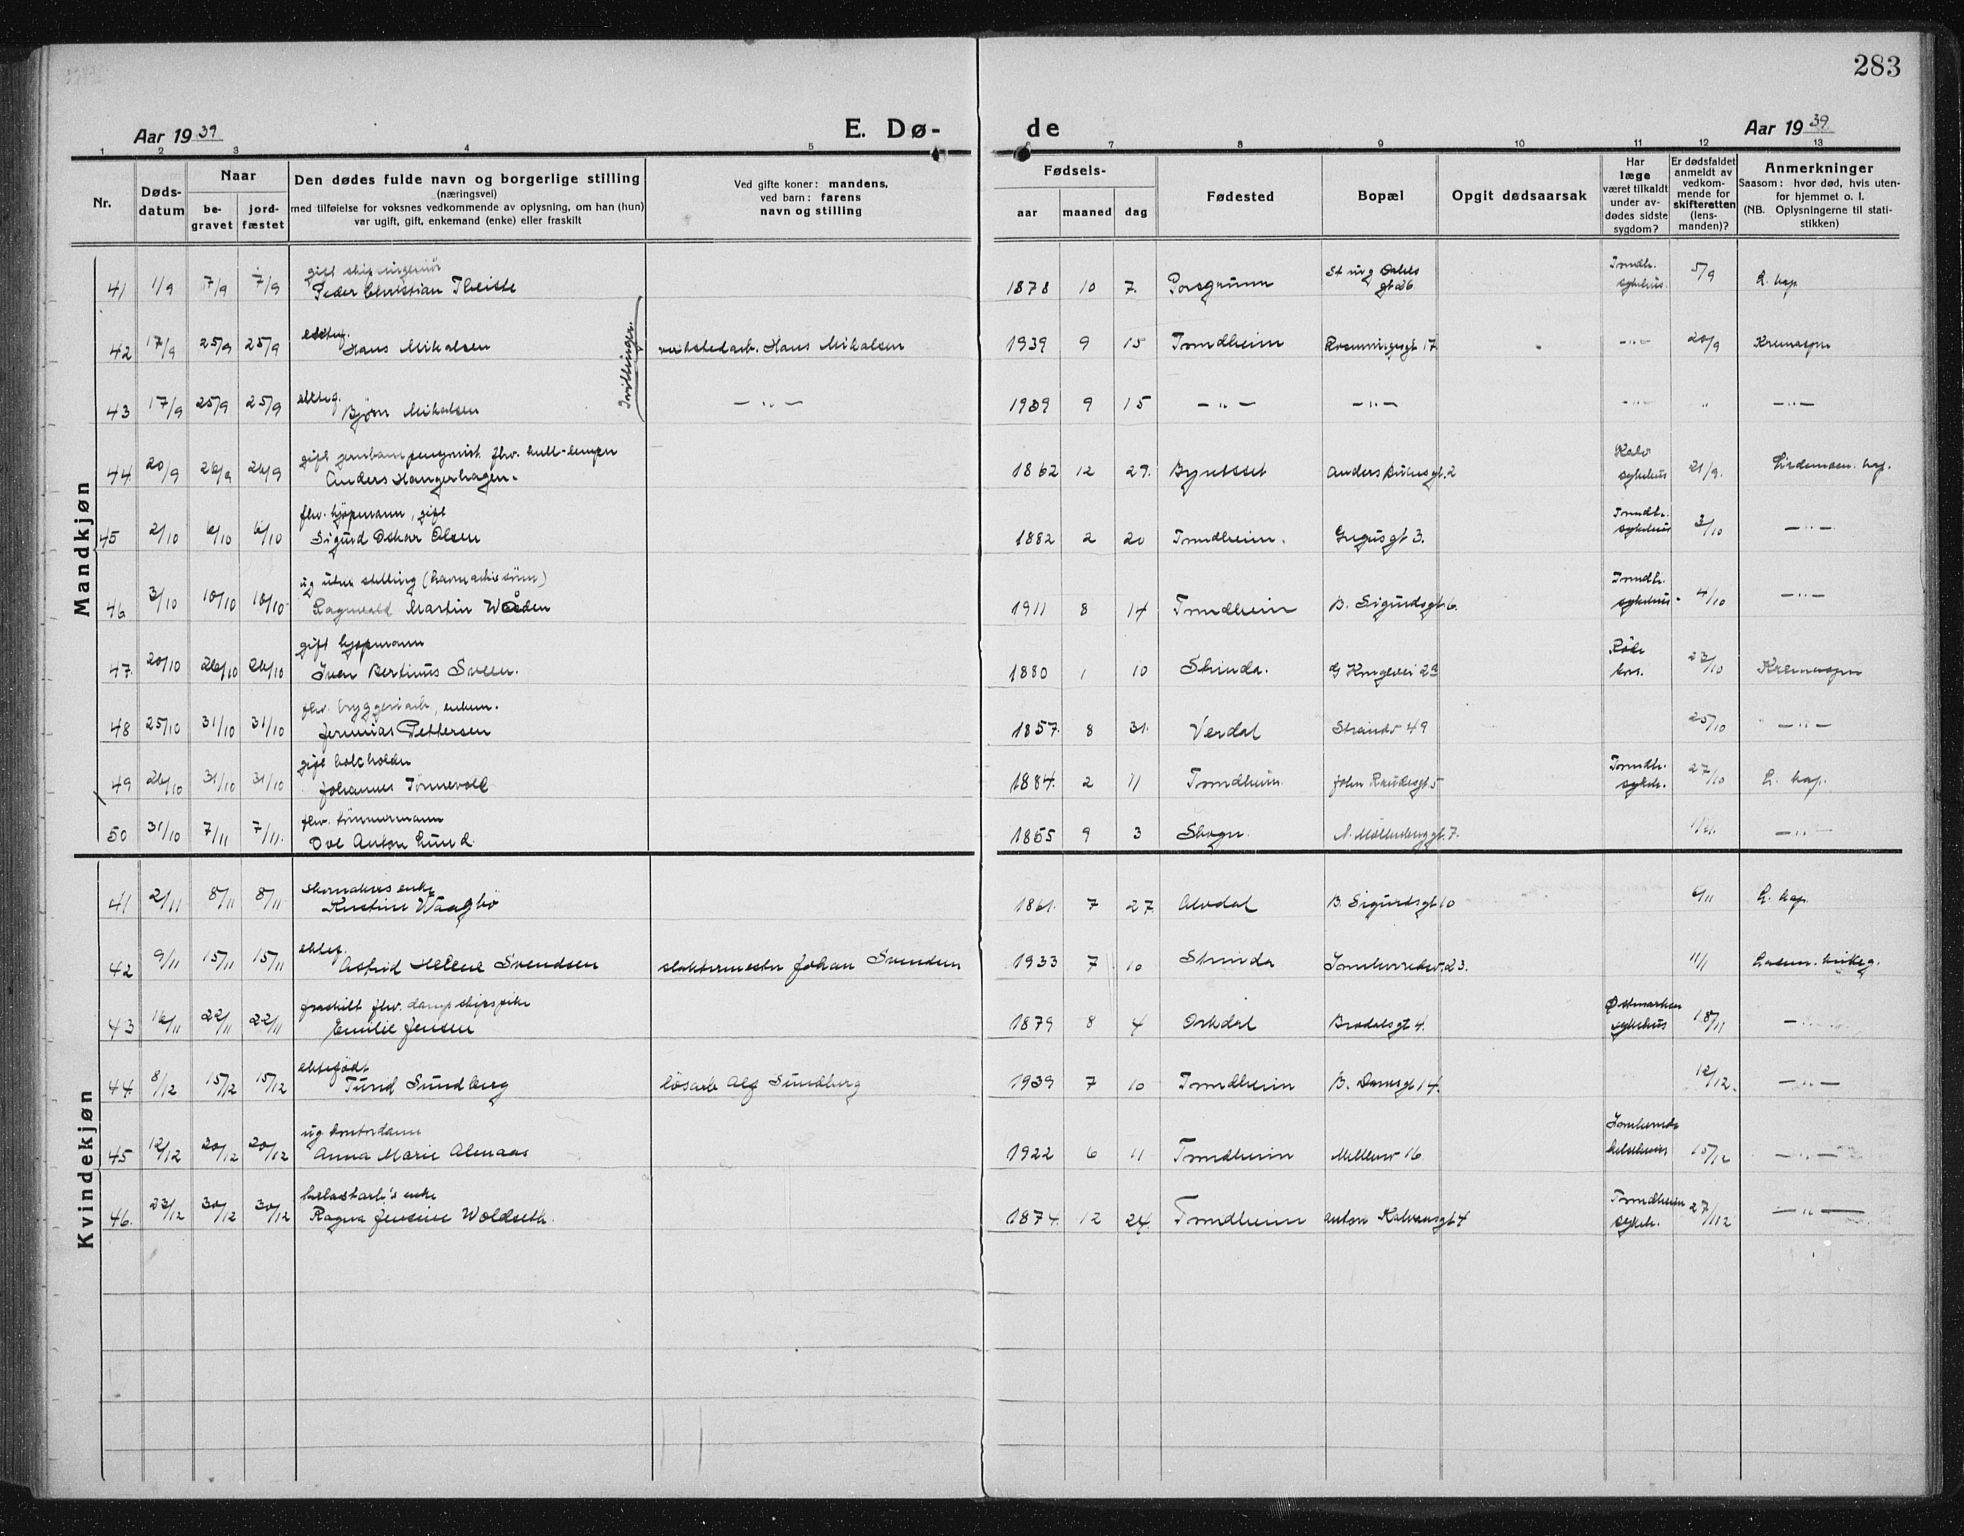 283
Aar 1939
E. Dø-
de
Aar 1939
1 2 3 4 5 6 7 8 9 10 11 12 13
Nr.
Døds-
datum
Naar
be-
gravet
jord-
fæstet
Den dødes fulde navn og borgerlige stilling
(næringsvei)
med tilføielse for voksnes vedkommende av oplysning, om han (hun)
var ugift, gift, enkemand (enke) eller fraskilt
Ved gifte koner: mandens,
ved barn: farens
navn og stilling
Fødsels-
aar maaned dag
Fødested
Bopæl
Opgit dødsaarsak
Har
læge
været tilkaldt
under av-
dødes sidste
sygdom?
Er dødsfaldet
anmeldt av
vedkom-
mende for
skifteretten
(lens-
manden)?
Anmerkninger
Saasom: hvor død, hvis uten-
for hjemmet o. l.
(NB. Oplysningerne til stati-
stikken)
Mandkjøn
gift skipsingeniør
41 1/9 7/9 7/9 Peder Christian Theiste 1878 10 7. Porsgrunn gt 26 Trondh. sykehus. 5/9 L. kap
ektef.
42 17/9 25/9 25/9 Hans Mikalsen verkstedarb. Hans Mikalsen 1939 9 15 Trondheim 17 -"- 20/9
Tvillinger.
ektef.
43 17/9 25/9 25/9 Bjørn Mikalsen -"- 1939 9 15 -"- -"- -"- " -"-
gift jernbanepensjonist fhv.
44 20/9 26/9 26/9 Anders Hangerhagen. 1862 12 29. Byneset Anders Buens gt. 2 sykehus 21/9.
fhv. kjøpmann, gift
45 2/10 6/10 6/10 Sigurd Oskar Olsen 1882 2 20 Trondheim. gt 3. Trondh. sykehus 3/10 -"-
ug uten stilling
46 3/10 10/10 10/10 Ragnvald Martin 1911 8 14 Trondheim B. Sigurdsgt 6. Trondh. sykehus 4/10 -"-
gift kjøpmann
47. 20/10 26/10 26/10 Iver Bertinus Sveen. 1880 1 10 Strinda. Røde kors. 23/10
fhv. bryggeriarb, enkem.
48 25/10 31/10 31/10 Jeremias Pettersen 1857. 8 31. Verdal Strandv 49 25/10 -"-
gift
49 26/10 31/10 31/10 Johannes Tønnevold 1884. 2 11 Trondheim. gt. 5 Trondh. sykeh. 27/10 L. kap.
fhv. tømmermann
50 31/10 7/11 7/11. Ove Anton Lund. 1855 9 3 Skogn. N. Møllenberggt. 7. -"-
Kvindekjøn
skomakers enke
41 2/11 8/11 8/11 Kristine Waagbø 1861. 7 27. Alvdal B. Sigurdsgt 10 6/11 L. kap.
ektef.
42 9/11 15/11 15/11 Astrid Helene Svendsen slaktermester Johan Svendsen 1933 7 10 Strinda 23. 11/11
fraskilt fhv. dampskipspike
43 16/11 22/11 22/11 Emilie Jensen 1879 8 4 Orkdal gt 4. Østmarken sykehus 18/11 -"-
ektefødt
44. 8/12 15/12 15/12 Turid Sundberg løsarb Alf Sundberg 1939 7 10 Trondheim 14. 12/12. -"-
ug kontordame
45 12/12 20/12 20/12 Anna Marie Almaas 1922 6 11 Trondheim Møllenv 16. 15/12 -"-
enke
46. 23/12 30/12 30/12 Ragna Jensine Woldseth. 1874. 12 24. Trondheim Anton Kalvaas gt 4 Trondheim sykeh. 27/12 -"-